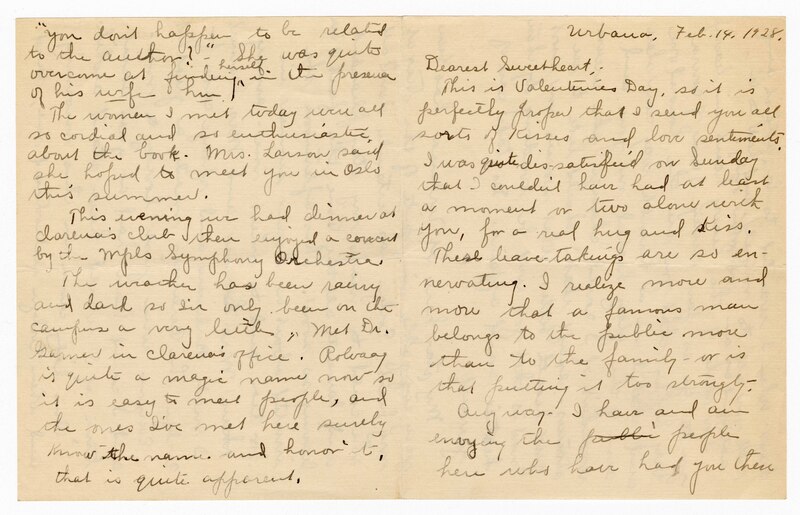 Urbana, Feb. 14, 1928.
Dearest Sweetheart,
This is Valentines Day, so it is
perfectly proper that I send you all
sorts of kisses and love sentiments.
I was quite dis-satisfied on Sunday
that I couldn't have had at least
a moment or two alone with
you, for a real hug and kiss.
These leave-takings are so en-
nervating. I realize more and
more that a famous man
belongs to the public more
than to the family - or is
that putting it too strongly.
Anyway. I have and am
envying the public people
here who have had you these
"you don't happen to be related
to the author?" She was quite
overcome at finding herself in the presence
of his wife him
The women I met today were all
so cordial and so enthusiastic
about the book. Mrs. Larson said
she hoped to meet you in Oslo
this summer.
This evening we had dinner at
Clarena's club, then enjoyed a concert
by the Mpls Symphony Orchestra.
The weather has been rainy
and dark so I've only been on the
campus a very little. Met Dr.
in Clarena's office. Rolvaag
is quite a magic name now so
it is easy to meet people, and
the ones I've met here surely
know the name and honor it,
that is quite apparent.